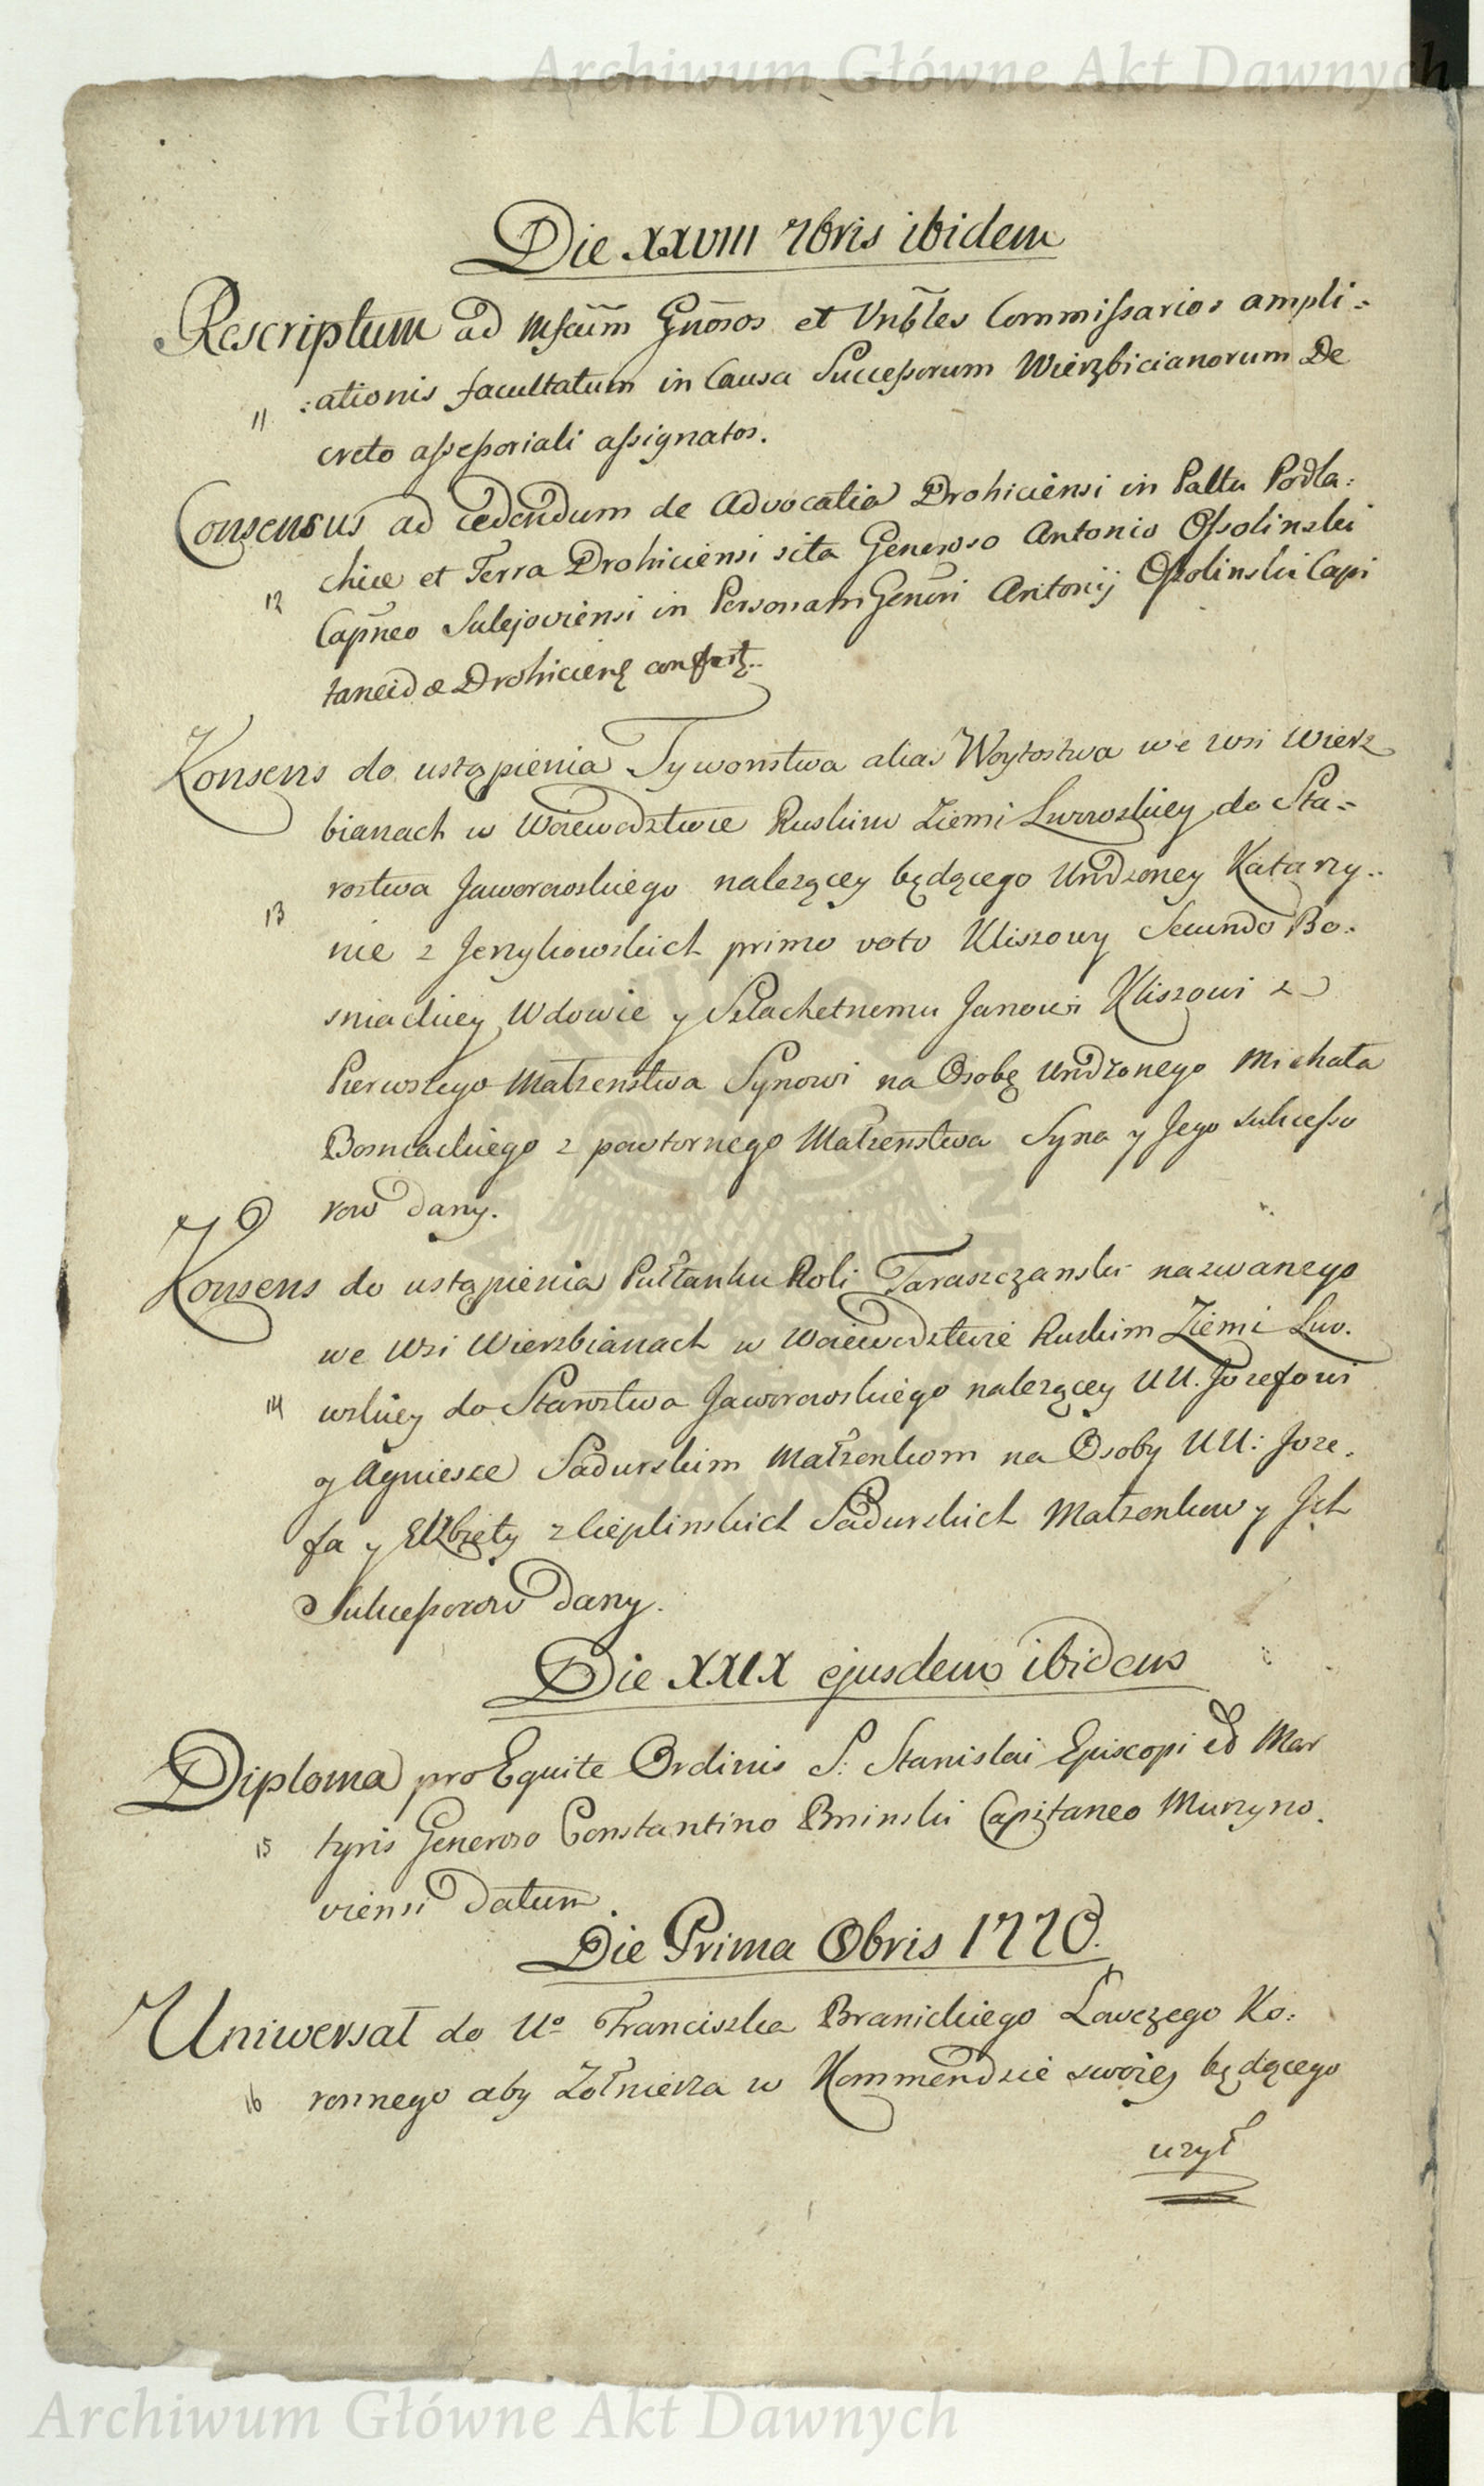 Archiwum Główne Akt Dawnych
Die XXVIII 7bris ibidem
Rescriptum ad Mfcūm Gnōsos et Vnb̃les Commissarios ampli=
11 :ationis facultatum in Causa Successorum Wierzbicianorum De
creto assessoriali assignatos.
Consensus ad cedendum de Advocatia Drohiciensi in Pallu Podla:
12 chiæ et Terra Drohiciensi sita Generoso Antonio Ossolinski
Capñeo Sulejoviensi in Personam Genĕri Antonij Ossolinski Capi
taneidæ Drohicieñ
Konsens do ustąpienia Tywonstwa alias Woytostwa we wsi Wierz
bianach w Woiewodztwie Ruskim Ziemi Lwowskiey do Sta=
13 rostwa Jaworowskiego nalezącey będącego Urodzoney Katarzy..
nie z Jerzykowskich primo voto Kliszowy Secundo Bo.
sniackiey Wdowie y Szlachetnemu Janowi Kliszowi z
Pierwszego Małzenstwa Synowi na Osobę Urodzonego Michała
Bosniackiego z powtornego Małzenstwa Syna y Jego sukcesso
row dany.
Konsens do ustąpienia Pułłanku Roli Taraszczanski nazwanego
we Wsi Wierzbianach w Woiewodztwie Ruskim Ziemi Lwo.
14 wskiey do Starostwa Jaworowskiego nalezącey UU. Jozefowi
y Agniesce Sadurskim Małzenkom na Osoby UU: Joze.
fa y Elzbiety z Cieplinskich Sadurskich Małzenkow y Jch
Sukcessorow dany.
Die XXIX ejusdem ibidem
Diploma pro Equite Ordinis S. Stanislai Episcopi et Mar
15 tyris Generoso Constantino Bninski Capitaneo Murzyno.
viensi datum.
Die Prima 8bris 1770.
Uniwersał do Uo Franciszka Branickiego Łowczego Ko:
16 ronnego aby Zołnierza w Kommendzie swoiey będącego
uzył
Archiwum Główne Akt Dawnych